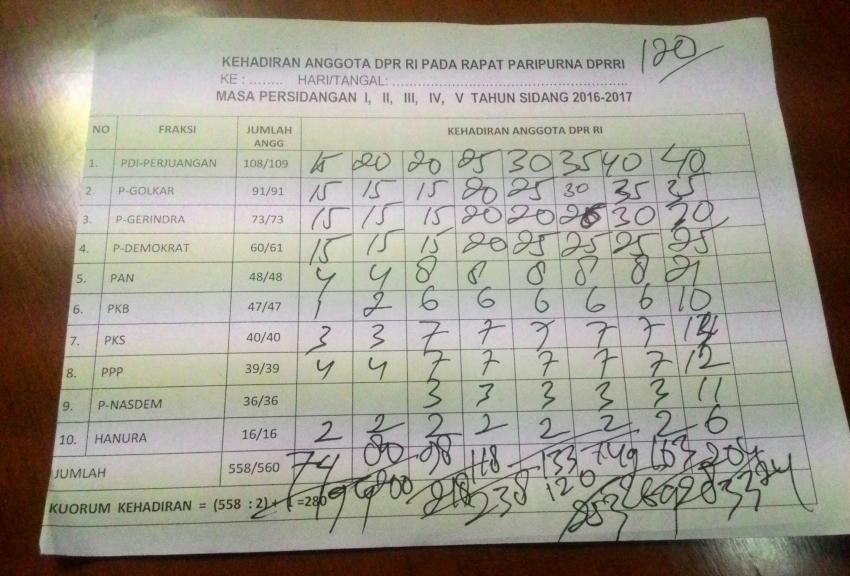 120
KEHADIRAN ANGGOTA DPR RI PADA RAPAT PARIPURNA DPRRI
KE : ........ HARI/TANGAL: ........................................................
MASA PERSIDANGAN I, II, III, IV, V TAHUN SIDANG 2016-2017
NO FRAKSI JUMLAH ANGG KEHADIRAN ANGGOTA DPR RI
1. PDI-PERJUANGAN 108/109 15 20 20 25 30 35 40 40
2. P-GOLKAR 91/91 15 15 15 20 25 30 35 35
3. P-GERINDRA 73/73 15 15 15 20 20 25 30 30
4. P-DEMOKRAT 60/61 15 15 15 20 25 25 25 25
5. PAN 48/48 4 4 8 8 8 8 8 21
6. PKB 47/47 1 2 6 6 6 6 6 10
7. PKS 40/40 3 3 7 7 7 7 7
8. PPP 39/39 4 4 7 7 7 7 7 12
9. P-NASDEM 36/36 3 3 3 3 3 11
10. HANURA 16/16 2 2 2 2 2 2 2 6
JUMLAH 558/560 74 80 98 118 133 149 163 204
KUORUM KEHADIRAN = (558 : 2) + 1 =280 200 218 238 120 253